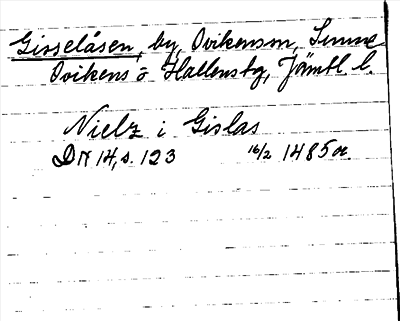 Gisselåsen, by, Ovikensn, Sunne
Ovikens o Hallenstg, Jämtl. l.
Nielz i Gislas
DN 14, s. 123 16/2 1485 or.